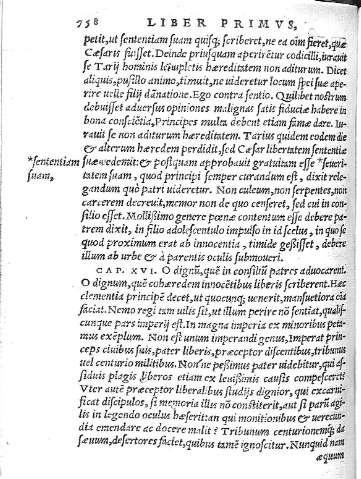 758 LIBER PRIMVS,
petit, ut sententiam suam quisq; scriberet, ne ea oīm fieret, quæ
Cæsaris fuisset. Deinde priusquam aperirētur codicilli, iurauit
se Tarij hominis locupletis hæreditatem non aditurum. Dicet
aliquis, pusillo animo, timuit, ne uideretur locum spei suæ ape-
rire uelle filij dānatione. Ego contra sentio. Quilibet nostrum
debuisset aduersus opiniones malignas satis fiduciæ habere in
bona consciētia, Principes multa debent etiam famæ dare. Iu-
rauit se non aditurum hæreditatem. Tarius quidem eodem die
& alterum hæredem perdidit, sed Cæsar libertatem sententiæ
*sententiam suam,
suæ uendidit: & postquam approbauit gratuitam esse *seueri-
tatem suam, quod principi semper curandum est, dixit rele-
gandum quò patri uideretur. Non culeum, non serpentes, non
carcerem decreuit, memor non de quo censeret, sed cui in con-
silio esset. Mollissimo genere pœnæ contentum esse debere pa-
trem dixit, in filio adolescentulo impulso in id scelus, in quo se
quod proximum erat ab innocentia, timide gessisset, debere
illum ab urbe & à parentis oculis submoueri.
CAP. XVI. O dignū, quē in consiliū patres aduocarent.
O dignum, quē cohæredem innocētibus liberis scriberent. Hæc
clementia principē decet, ut quocunq; uenerit, mansuetiora oīa
faciat. Nemo regi tam uilis sit, ut illum perire nō sentiat, quali-
cunque pars imperij est. In magna imperia ex minoribus peta-
mus exēplum. Non est unum imperandi genus, Imperat prin-
ceps ciuibus suis, pater liberis, præceptor discentibus, tribunus
uel centurio militibus. Nōn'ne pessimus pater uidebitur, qui as-
siduis plagis liberos etiam ex leuissimis causis compescerit?
Vter autē præceptor liberalibus studijs dignior, qui excarni-
ficat discipulos, si memoria illis nō constiterit, aut si parū agi-
lis in legendo oculus hæserit: an qui monitionibus & uerecun-
dia emendare ac docere malit? Tribunum centurionemq; da
sæuum, desertores faciet, quibus tamē ignoscitur. Nunquid nam
æquum